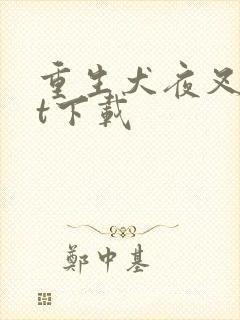 重生犬夜叉
t下載
鄭中基